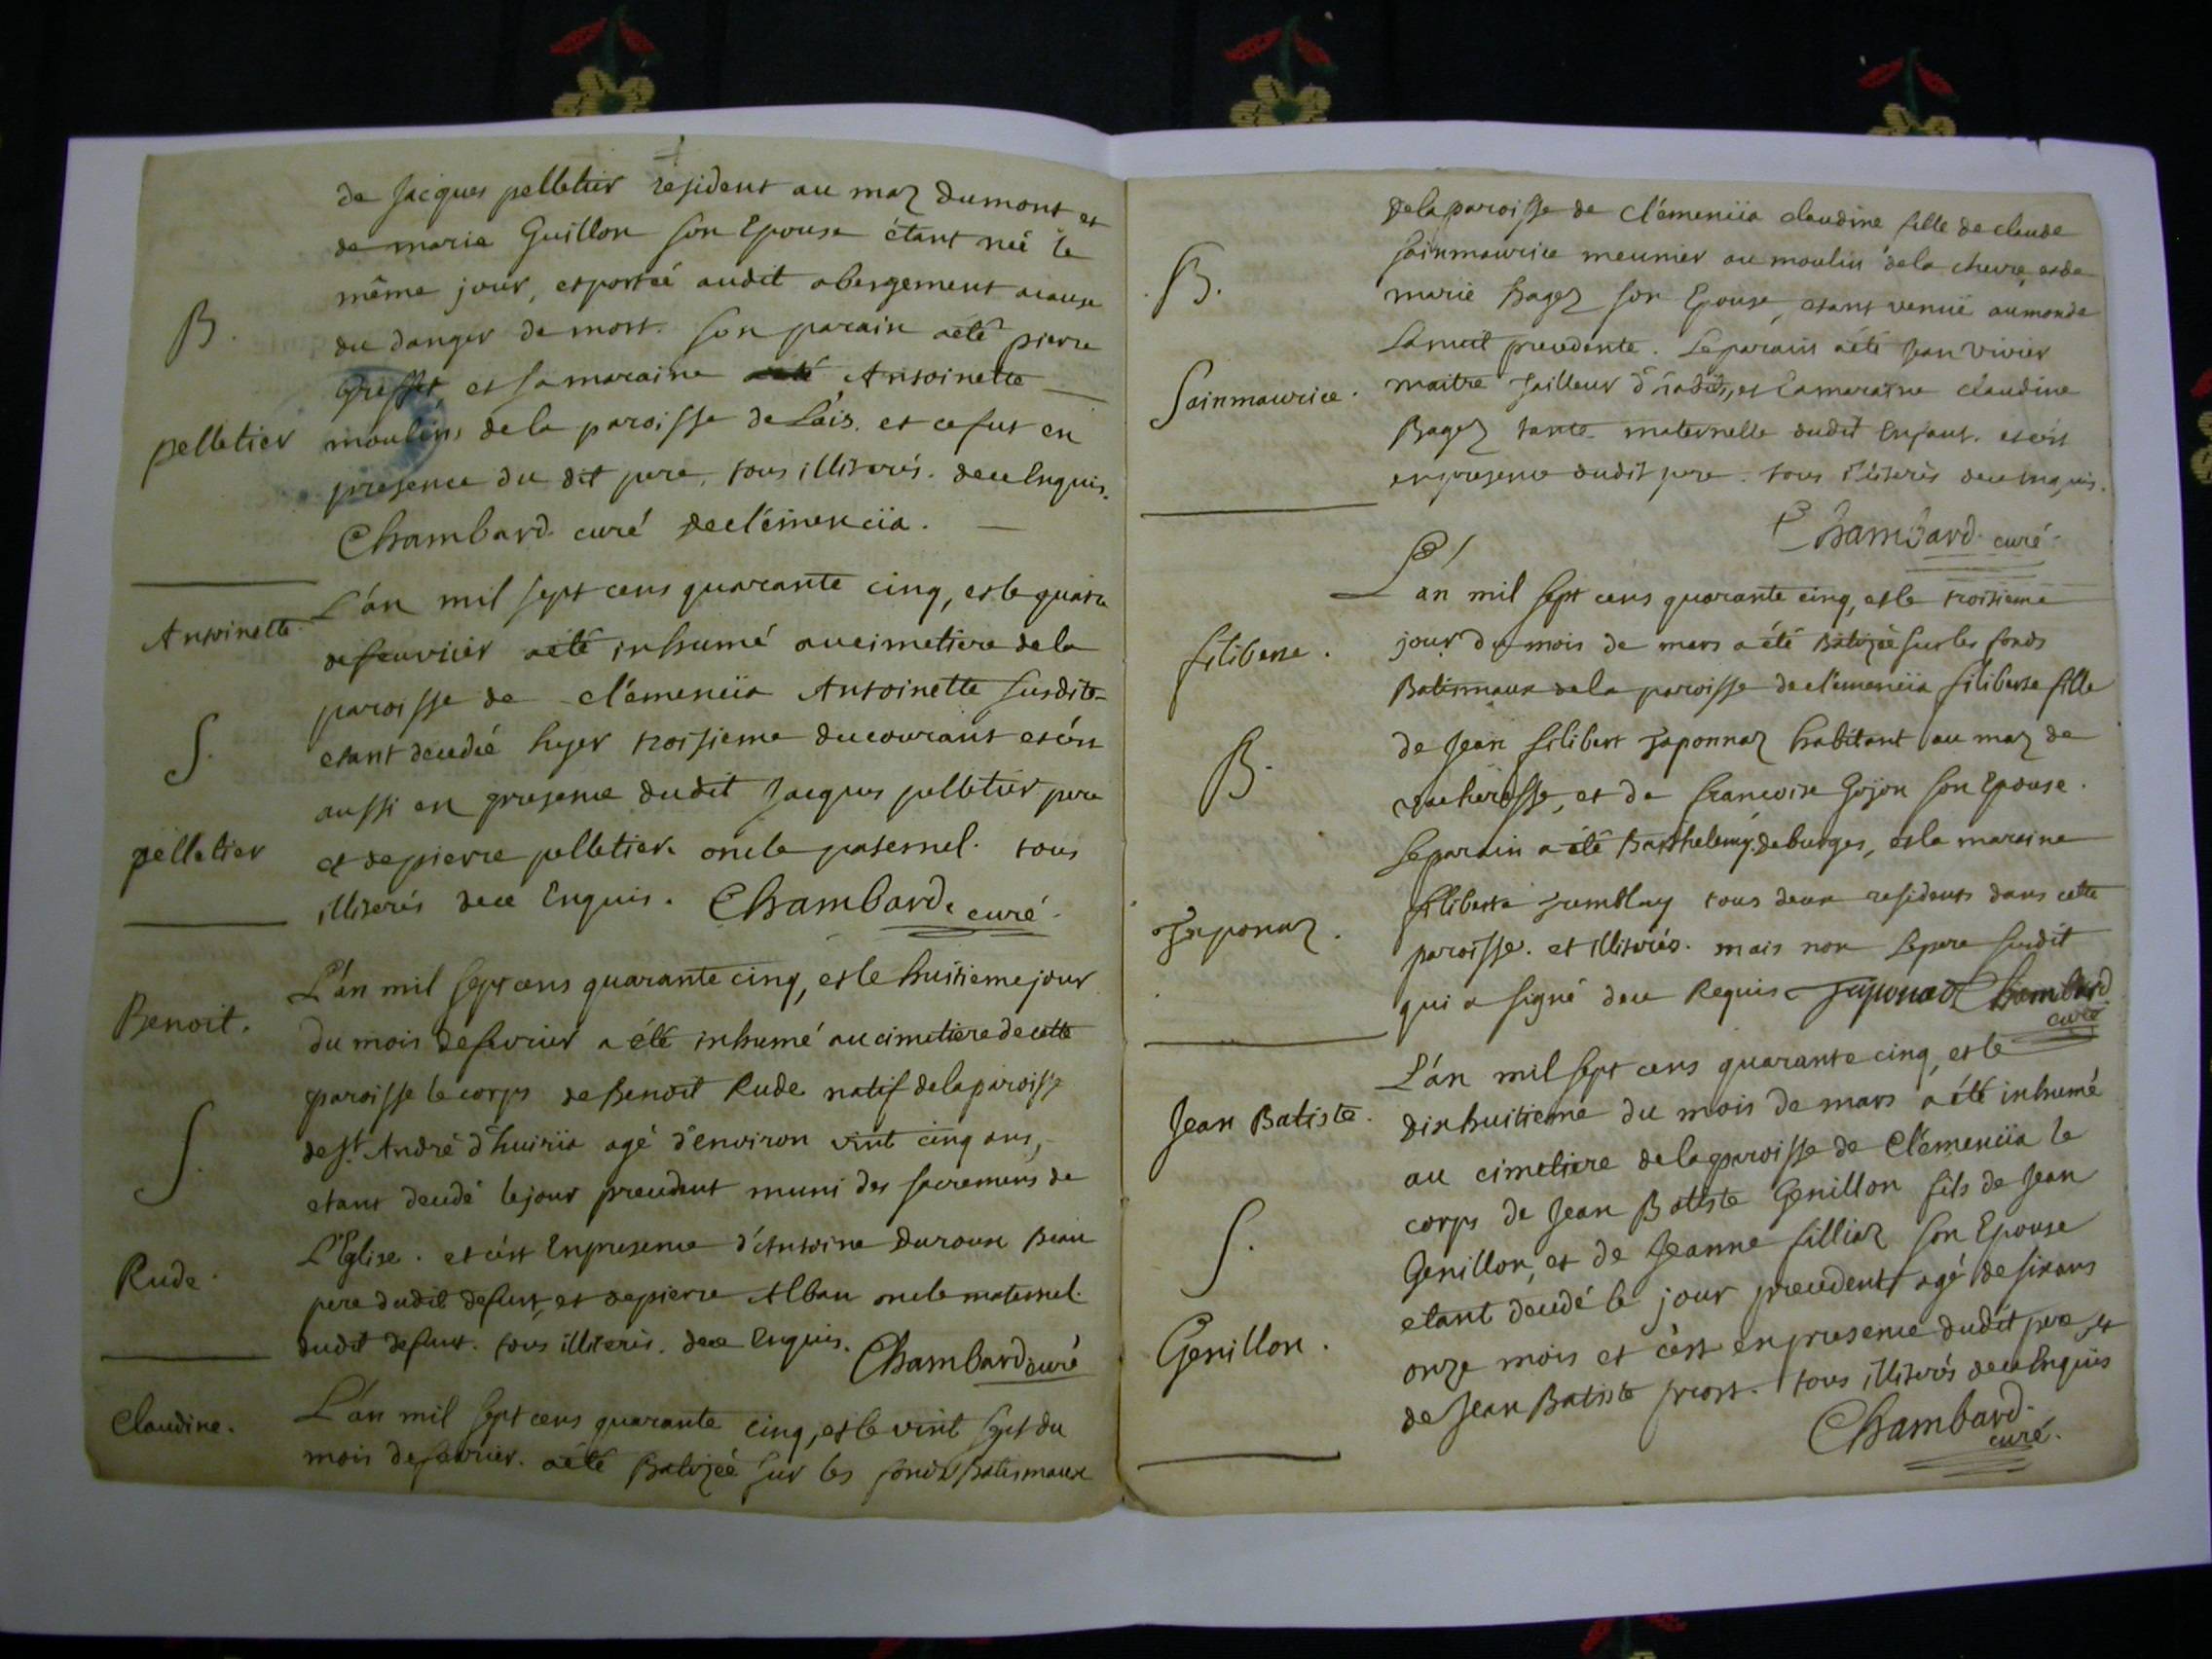 de Jacques pelletier resident au maz dumont et
de marie Guillon son Epouse étant neé le
même jour, et porteé audit abergement acause
du danger de mort. son parain a été pierre
et sa maraine Antoinette
B.
moulin, de la paroisse de Lais. et ce fut en
pelletier
presence du dit pere, tous illiterés. de ce Enquis.
Chambard curé de clémenciia.
L'án mil sept cens quarante cinq, et le quatre
Antoinette
de feuvrier a été inhumé au cimetiere de la
paroisse de clémenciia Antoinette susdite
etant decedeé hyer troisieme du courant et c'est
S.
aussi en presence dudit Jacques pelletier pere
et de pierre pelletier oncle paternel. tous
pelletier
illiterés de ce Enquis. Chambard. curé.
L'án mil sept cens quarante cinq, et le huitieme jour
Benoit.
du mois de fevrier a été inhumé au cimetiere de cette
paroisse le corps de Benoit Rude natif de la paroisse
de St André d'huiriia agé d'environ vint cinq ans,
S.
etant decedé le jour precedent muni des sacremens de
L'Eglise. et c'est En presence d'Antoine Duroux Beau
Rude.
pere dudit defunt, et de pierre Alban oncle maternel
dudit defunt. tous illiterés. de ce Enquis. Chambard curé
L'án mil sept cens quarante cinq, et le vint sept du
Claudine.
mois de fevrier. a été Batizeé sur les fonds Batismaux
de la paroisse de Clémenciia claudine fille de claude
Sainmaurice meunier au moulin de la chevre, et de
B.
marie Bagez son Epouse, etant venuë au monde
La nuit precedente. Le parain a été Jean Vivier
maitre Tailleur d'habits, et La maraine claudine
Sainmaurice.
Bagez tante maternelle dudit Enfant. et c'est
en presence dudit pere. tous illiterés de ce enquis.
Chambard. curé.
L'an mil sept cens quarante cinq, et le troisieme
filiberte.
jour du mois de mars a été Batizeé sur les fonds
Batismaux de la paroisse de clémenciia filiberte fille
de Jean filibert Japonnaz habitant au maz de
B.
vacheresse, et de francoise Gojon son Epouse.
Le parain a été Barthelemy deburges, et la maraine
filiberte Jumblay tous deux residents dans cette
Japonaz.
paroisse. et illiterés. mais non le pere susdit
qui a signé de ce Requis Japonaz Chambard
curé
L'án mil sept cens quarante cinq, et le
Jean Batiste.
dixhuitieme du mois de mars a été inhumé
au cimetiere de la paroisse de Clémenciia le
corps de Jean Batiste Genillon fils de Jean
S.
Genillon, et de Jeanne filliaz son Epouse
etant decedé le jour precedent agé de six ans
Genillon.
onze mois et c'est en presence dudit pere, et
de Jean Batiste priost. tous illiterés de ce Enquis
Chambard.
curé.